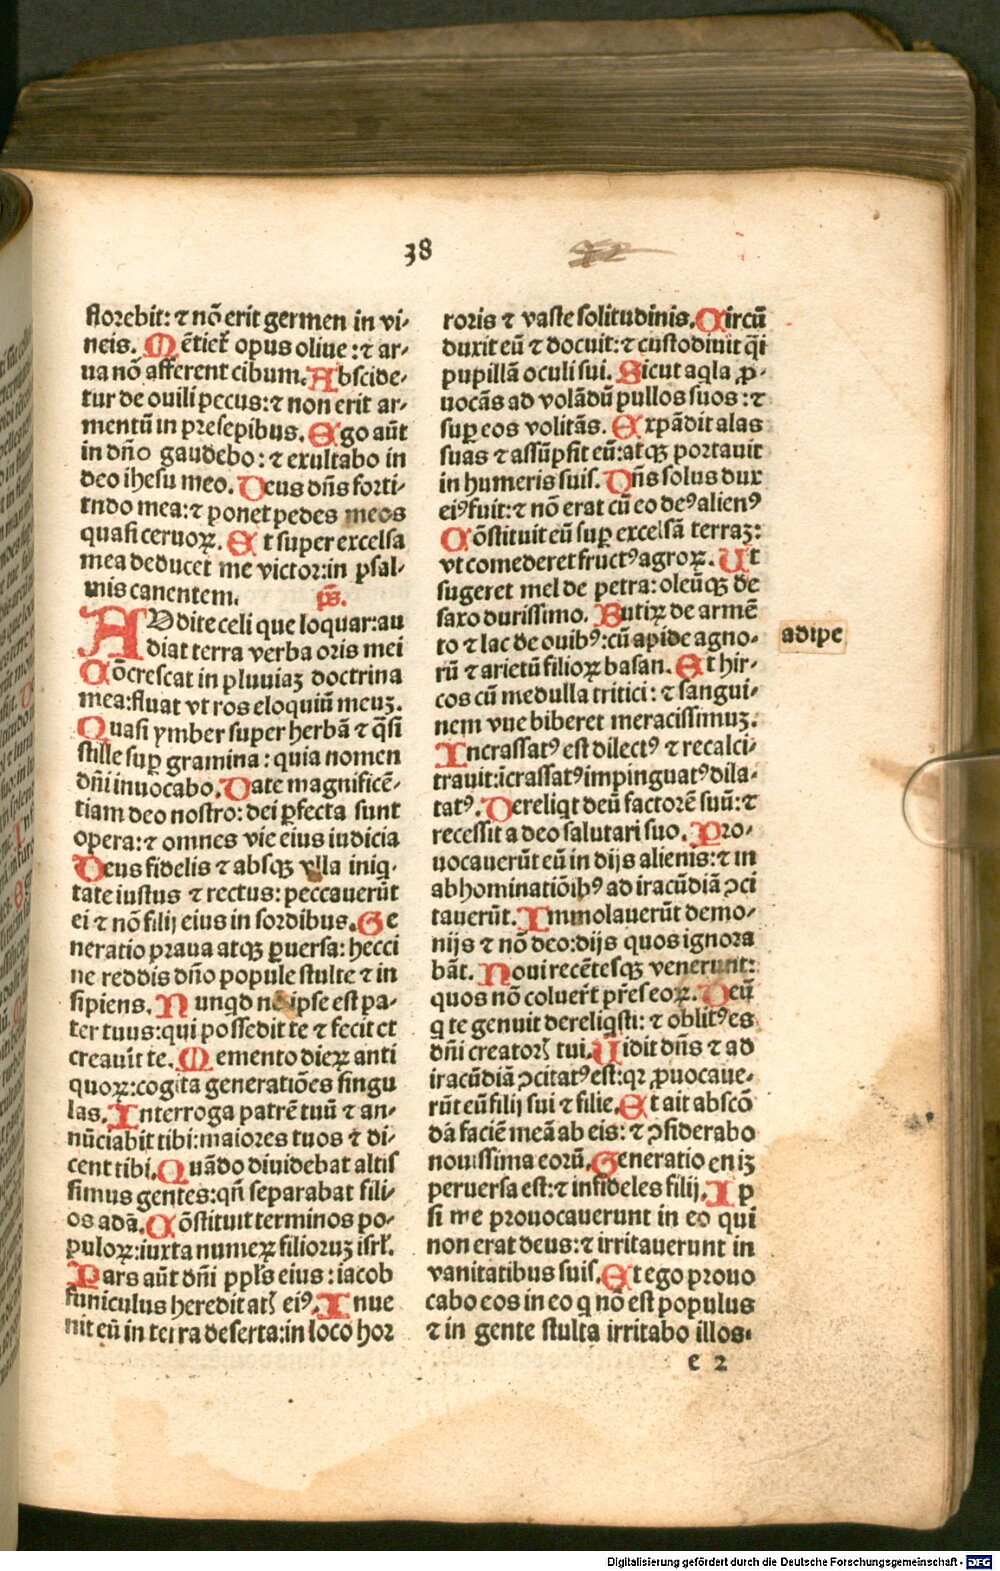 38
florebit: ⁊ nō erit germen in vi⸗
neis. Mētieť opus oliue: ⁊ ar⸗
ua nō afferent cibum. Abscide⸗
tur de ouili pecus: ⁊ non erit ar⸗
mentū in presepibus. Ego aūt
in dn̄o gaudebo: ⁊ exultabo in
deo ihesu meo. Deus dn̄s forti⸗
tudo mea: ⁊ ponet pedes meos
quasi ceruoꝝ. Et super excelsa
mea deducet me victor: in psal⸗
mis canentem. ps̄.
AVdite celi que loquar: au
diat terra verba oris mei
Cōcrescat in pluuiaꝫ doctrina
mea: fluat vt ros eloquiū meuꝫ.
Quasi ymber super herbā ⁊ q̄si
stille suꝑ gramina: quia nomen
dn̄i inuocabo. Date magnificē⸗
tiam deo nostro: dei ꝑfecta sunt
opera: ⁊ omnes vie eius iudicia
Deus fidelis ⁊ absqꝫ vlla iniq⸗
tate iustus ⁊ rectus: peccauerūt
ei ⁊ nō filij eius in sordibus. Ge
neratio praua atqꝫ ꝑuersa: hecci
ne reddis dn̄o popule stulte ⁊ in
sipiens. Nunqd ipse est pa⸗
ter tuus: qui possedit te ⁊ fecit et
creauit te. Memento dieꝝ anti
quoꝝ: cogita generatiōes singu
las. Interroga patrē tuū ⁊ an⸗
nūciabit tibi: maiores tuos ⁊ di⸗
cent tibi. Quādo diuidebat altis
simus gentes: qn̄ separabat fili⸗
os adā. Cōstituit terminos po⸗
puloꝝ: iuxta numeꝝ filioruꝫ isrł.
Pars aūt dn̄i ppl̄s eius: iacob
funiculus hereditatꝭ eiꝰ. Inue
nit eū in terra deserta: in loco hor
roris ⁊ vaste solitudinis. Circū
duxit eū ⁊ docuit: ⁊ custodiuit q̄si
pupillā oculi sui. Sicut aqla ꝓ⸗
uocās ad volādū pullos suos: ⁊
suꝑ eos volitās. Expādit alas
suas ⁊ assūpsit eū: atqꝫ portauit
in humeris suis. Dn̄s solus dux
eiꝰ fuit: ⁊ nō erat cū eo deꝰ alienꝰ
Cōstituit eū suꝑ excelsā terraꝫ:
vt comederet fructꝰ agroꝝ. Ut
sugeret mel de petra: oleūqꝫ de
saxo durissimo. Butiꝝ de armē
to ⁊ lac de ouibꝰ: cū apide agno⸗
rū ⁊ arietū filioꝝ basan. Et hir⸗
cos cū medulla tritici: ⁊ sangui⸗
nem vue biberet meracissimuꝫ.
Incrassatꝰ est dilectꝰ ⁊ recalci⸗
trauit: īcrassatꝰ impinguatꝰ dila⸗
tatꝰ. Dereliqt deū factorē suū: ⁊
recessit a deo salutari suo. Pro⸗
uocauerūt eū in dijs alienis: ⁊ in
abhominatiōibꝰ ad iracūdiā ↄci
tauerūt. Immolauerūt demo⸗
nijs ⁊ nō deo: dijs quos ignora
bāt. Noui recētesqꝫ venerunt:
quos nō coluerūt pr̄es eoꝝ. Deū
q te genuit dereliqsti: ⁊ oblitꝰ es
dn̄i creatorꝭ tui. Uidit dn̄s ⁊ ad
iracūdiā ↄcitatꝰ est: qꝛ ꝓuocaue⸗
rūt eū filij sui ⁊ filie. Et ait abscō
dā faciē meā ab eis: ⁊ ↄsiderabo
nouissima eorū. Generatio eniꝫ
peruersa est: ⁊ infideles filij. Ip
si me prouocauerunt in eo qui
non erat deus: ⁊ irritauerunt in
vanitatibus suis. Et ego prouo
cabo eos in eo q nō est populus
⁊ in gente stulta irritabo illos.
e 2
adipe
Digitalisierung gefördert durch die Deutsche Forschungsgemeinschaft - DFG